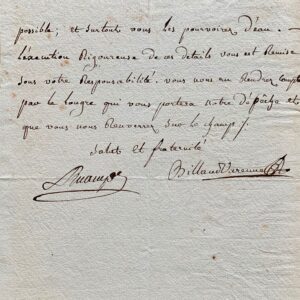 possible; et surtout vous les pourvoirez d'eau. —
L'execution Rigoureuse de ces details vous est Remise
sous votre Responsabilité. vous nous en Rendrez compte
par le lougre qui vous portera notre dépêche et
que vous nous Renverrez sur le champ /.
Salut et fraternité
Billaud Varenne